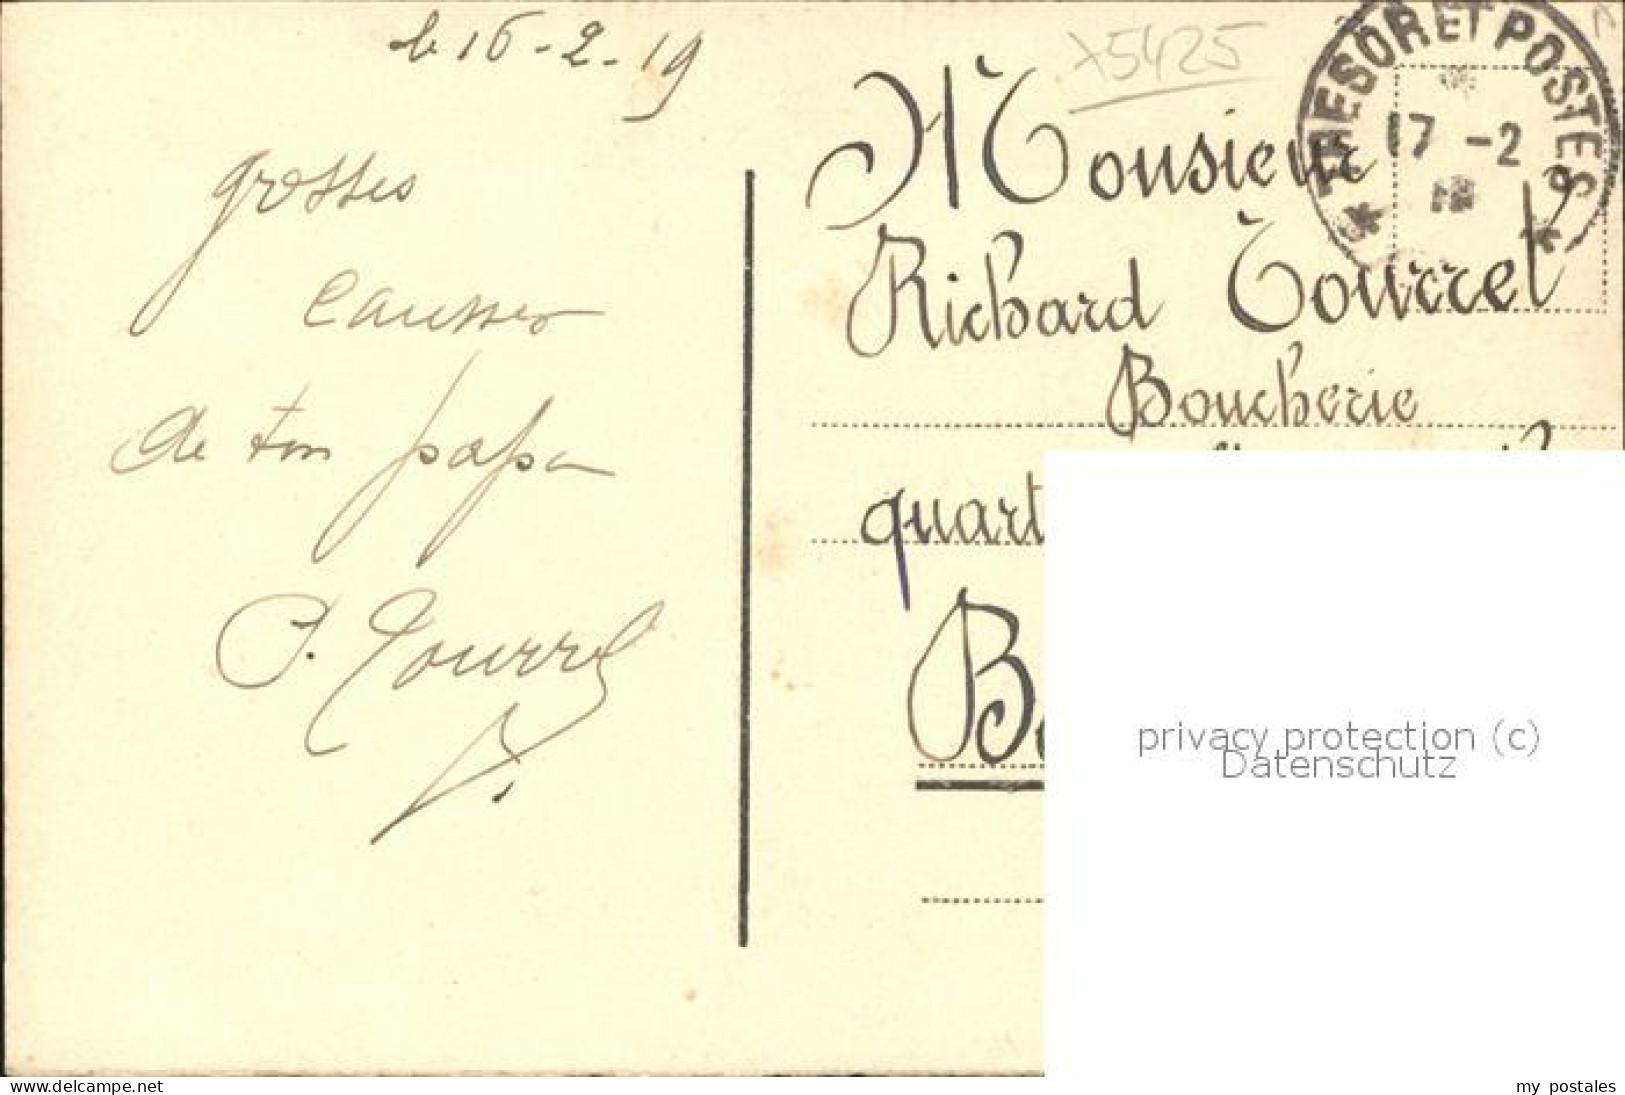 le 16-2-19
grosses
causses
de ton papa
P. Tourrel
X5425
TRESOR ET POSTES
17 -2
Monsieur
Richard Tourrel
Boucherie
quart
B
privacy protection (c)
Datenschutz
www.delcampe.net
my postales